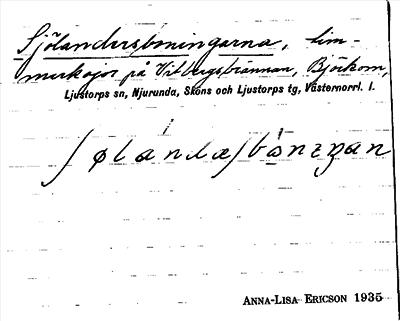 Sjölandersboningarna, tim-
merkojor på Vitbergsbrännan, Björkom,
Ljustorps sn, Njurunda, Sköns och Ljustorps tg, Västernorrl. l.
ANNA-LISA ERICSON 1935